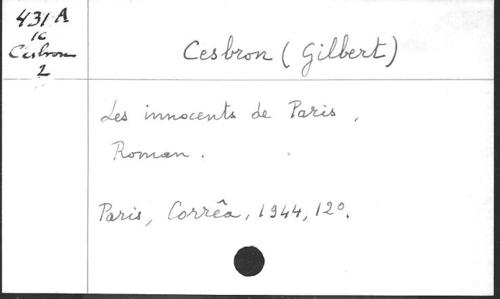 431 A
1c
Cesbron
2
Cesbron (Gilbert)
Les innocents de Paris,
Roman.
Paris, Corrêa, 1944, 12º.